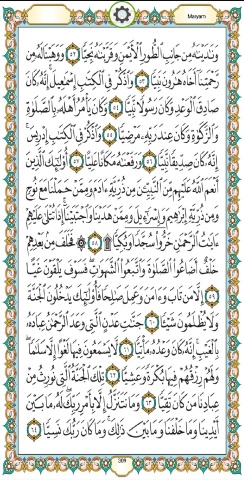 Maryam
وَنَٰدَيْنَٰهُ مِن جَانِبِ ٱلطُّورِ ٱلْأَيْمَنِ وَقَرَّبْنَٰهُ نَجِيًّا ٥٢ وَوَهَبْنَا لَهُۥ مِن
رَّحْمَتِنَآ أَخَاهُ هَٰرُونَ نَبِيًّا ٥٣ وَٱذْكُرْ فِى ٱلْكِتَٰبِ إِسْمَٰعِيلَ إِنَّهُۥ كَانَ
صَادِقَ ٱلْوَعْدِ وَكَانَ رَسُولًا نَّبِيًّا ٥٤ وَكَانَ يَأْمُرُ أَهْلَهُۥ بِٱلصَّلَوٰةِ
وَٱلزَّكَوٰةِ وَكَانَ عِندَ رَبِّهِۦ مَرْضِيًّا ٥٥ وَٱذْكُرْ فِى ٱلْكِتَٰبِ إِدْرِيسَ
إِنَّهُۥ كَانَ صِدِّيقًا نَّبِيًّا ٥٦ وَرَفَعْنَٰهُ مَكَانًا عَلِيًّا ٥٧ أُو۟لَٰٓئِكَ ٱلَّذِينَ
أَنْعَمَ ٱللَّهُ عَلَيْهِم مِّنَ ٱلنَّبِيِّۦنَ مِن ذُرِّيَّةِ ءَادَمَ وَمِمَّنْ حَمَلْنَا مَعَ نُوحٍ
وَمِن ذُرِّيَّةِ إِبْرَٰهِيمَ وَإِسْرَٰٓءِيلَ وَمِمَّنْ هَدَيْنَا وَٱجْتَبَيْنَآ إِذَا تُتْلَىٰ عَلَيْهِمْ
ءَايَٰتُ ٱلرَّحْمَٰنِ خَرُّوا۟ سُجَّدًا وَبُكِيًّا ۩ ٥٨ ۞ فَخَلَفَ مِنۢ بَعْدِهِمْ
خَلْفٌ أَضَاعُوا۟ ٱلصَّلَوٰةَ وَٱتَّبَعُوا۟ ٱلشَّهَوَٰتِ فَسَوْفَ يَلْقَوْنَ غَيًّا
٥٩ إِلَّا مَن تَابَ وَءَامَنَ وَعَمِلَ صَٰلِحًا فَأُو۟لَٰٓئِكَ يَدْخُلُونَ ٱلْجَنَّةَ
وَلَا يُظْلَمُونَ شَيْـًٔا ٦٠ جَنَّٰتِ عَدْنٍ ٱلَّتِى وَعَدَ ٱلرَّحْمَٰنُ عِبَادَهُۥ
بِٱلْغَيْبِ إِنَّهُۥ كَانَ وَعْدُهُۥ مَأْتِيًّا ٦١ لَّا يَسْمَعُونَ فِيهَا لَغْوًا إِلَّا سَلَٰمًا
وَلَهُمْ رِزْقُهُمْ فِيهَا بُكْرَةً وَعَشِيًّا ٦٢ تِلْكَ ٱلْجَنَّةُ ٱلَّتِى نُورِثُ مِنْ
عِبَادِنَا مَن كَانَ تَقِيًّا ٦٣ وَمَا نَتَنَزَّلُ إِلَّا بِأَمْرِ رَبِّكَ لَهُۥ مَا بَيْنَ
أَيْدِينَا وَمَا خَلْفَنَا وَمَا بَيْنَ ذَٰلِكَ وَمَا كَانَ رَبُّكَ نَسِيًّا ٦٤
309